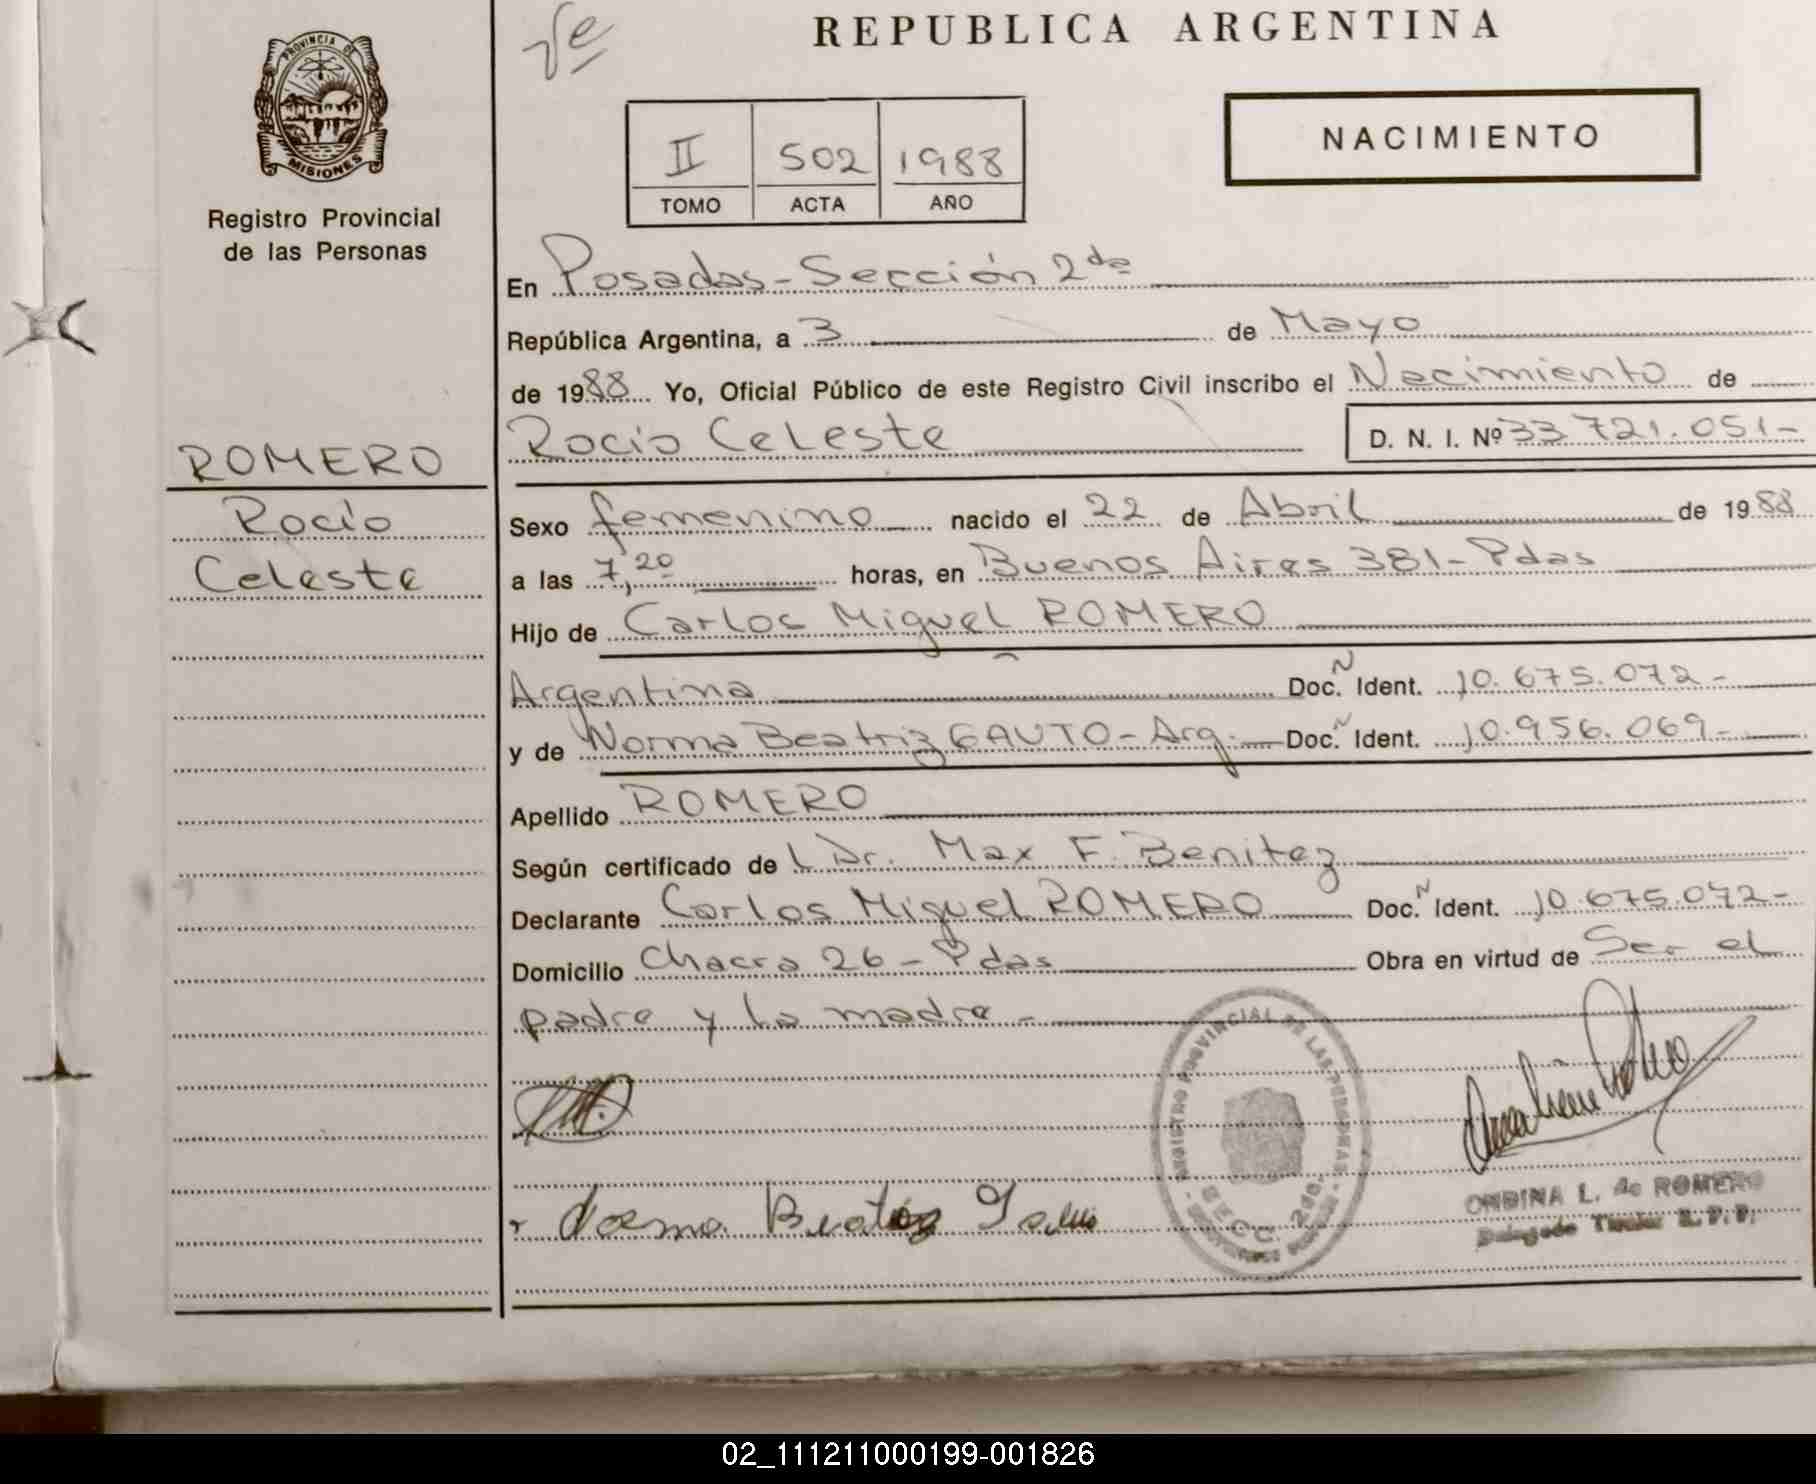 REPUBLICA ARGENTINA
PROVINCIA DE
MISIONES
Registro Provincial
de las Personas
II 502 1988
TOMO ACTA AÑO
NACIMIENTO
En Posadas - Sección 2da
República Argentina, a 3 de Mayo
de 1988 Yo, Oficial Público de este Registro Civil inscribo el Nacimiento de
Rocio Celeste D. N. I. Nº 33 721.051-
ROMERO
Rocio
Celeste
Sexo femenino nacido el 22 de Abril de 1988
a las 7,20 horas, en Buenos Aires 381 - Pdas
Hijo de Carlos Miguel ROMERO
Argentina Doc. N Ident. 10.675.072-
y de Norma Beatriz GAUTO - Arg. Doc. N Ident. 10.956.069-
Apellido ROMERO
Según certificado de l Dr. Max F. Benitez
Declarante Carlos Miguel ROMERO Doc. N Ident. 10.675.072-
Domicilio Chacra 26 - Pdas Obra en virtud de Ser el
padre y la madre -
REGISTRO PROVINCIAL DE LAS PERSONAS
SECC. 2da.
Norma Beatriz Gauto
ONDINA L. de ROMERO
Delegado Titular R. P. P.
02_111211000199-001826